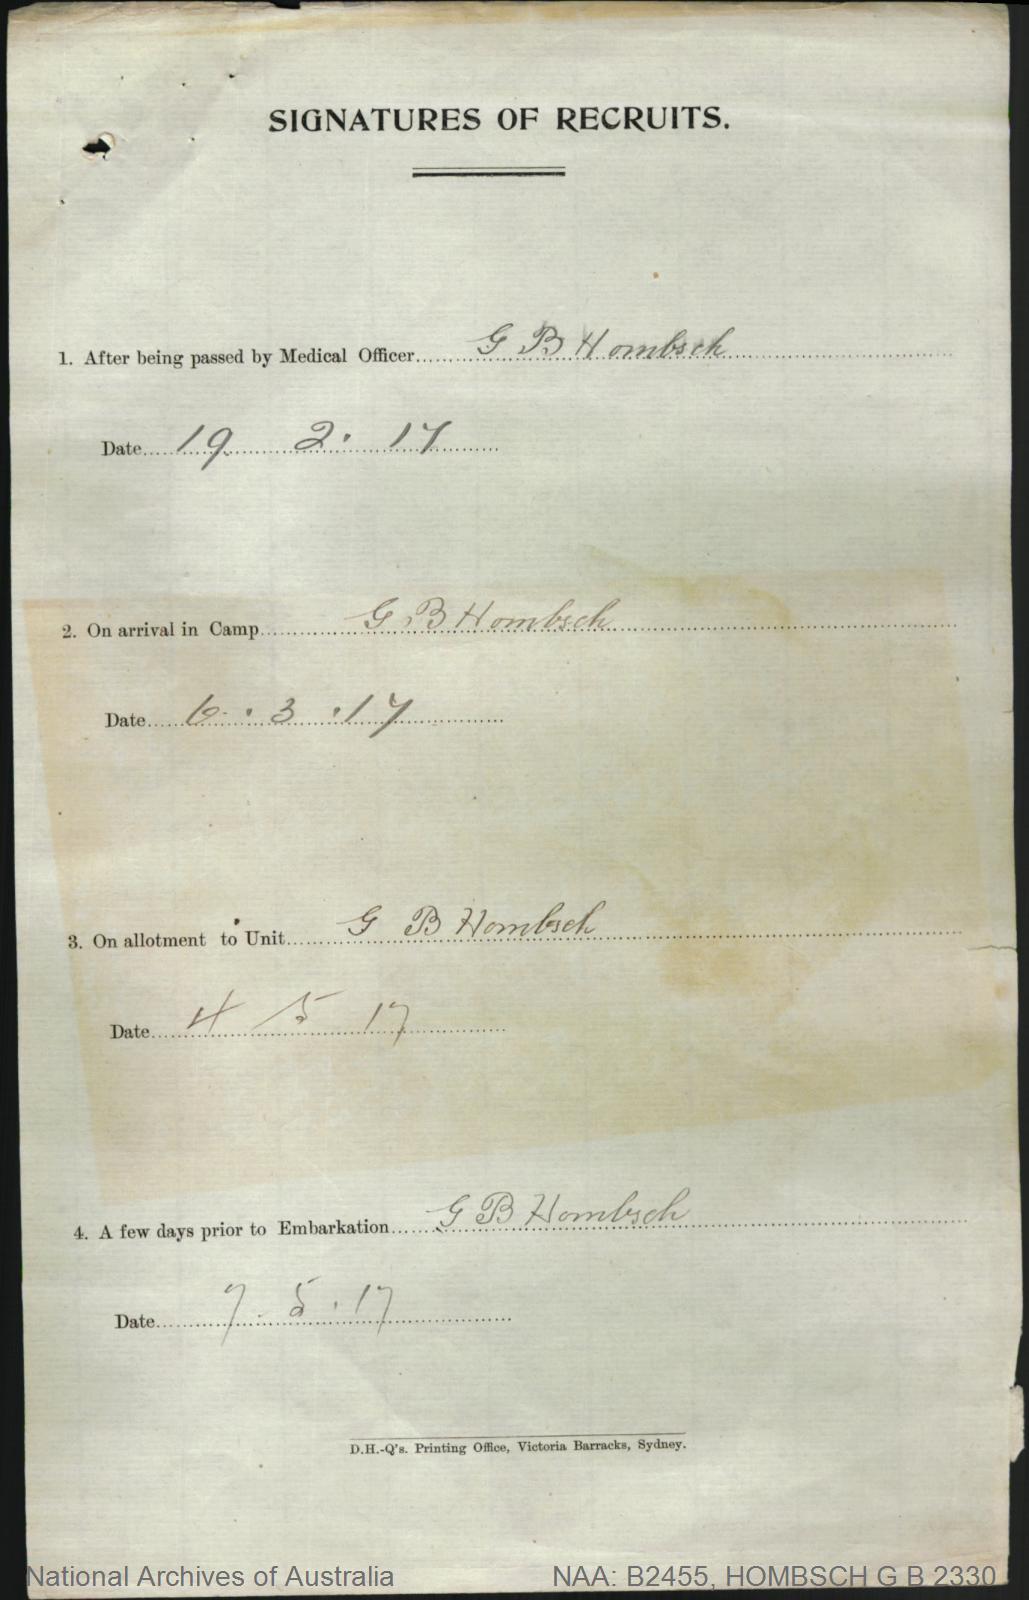 SIGNATURES OF RECRUITS.
1. After being passed by Medical Officer G B Hombsch
Date 19. 2. 17
2. On arrival in Camp G B Hombsch
Date 6. 3. 17
3. On allotment to Unit G B Hombsch
Date 4 5 17
4. A few days prior to Embarkation G B Hombsch
Date 7. 5. 17
D.H.-Q's. Printing Office, Victoria Barracks, Sydney.
National Archives of Australia NAA: B2455, HOMBSCH G B 2330